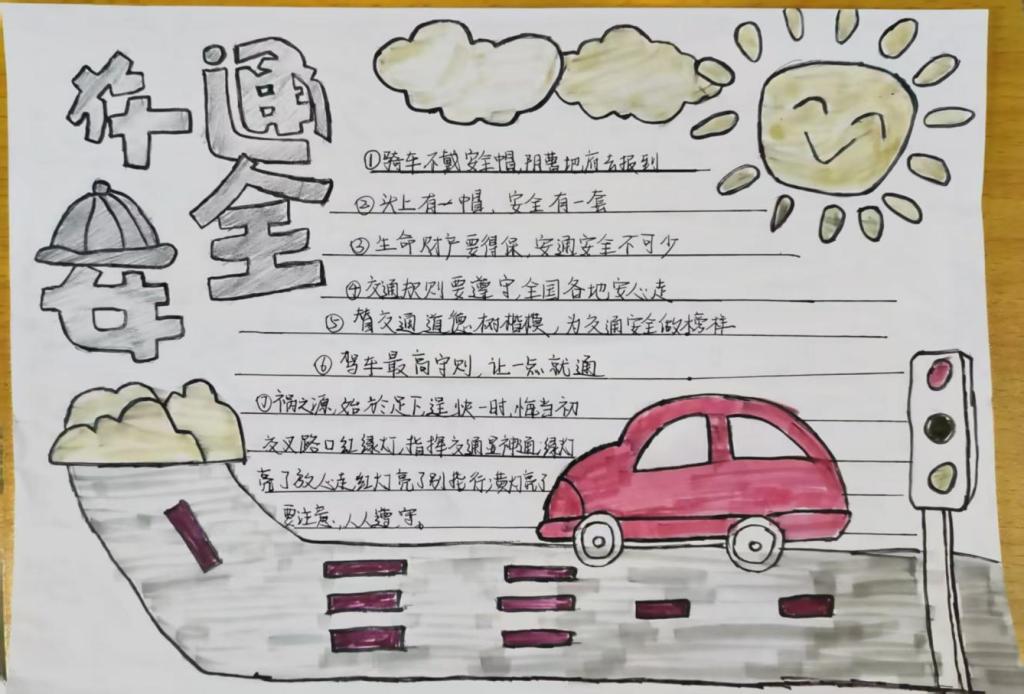 通
安全
①骑车不戴安全帽,阴曹地府去报到
②头上有一帽、安全有一套
③生命财产要得保,安通安全不可少
④交通规则要遵守,全国各地安心走
⑤替交通道德树楷模,为交通安全做榜样
⑥驾车最高守则,让一点就通
⑦祸之源,始於足下,逞快一时,悔当初
交叉路口红绿灯,指挥交通显神通,绿灯
亮了放心走,红灯亮了别抢行,黄灯亮了
要注意,人人遵守。